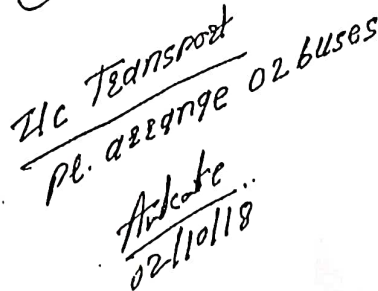 I/c Transport
Pl. arrange 02 buses
02/10/18